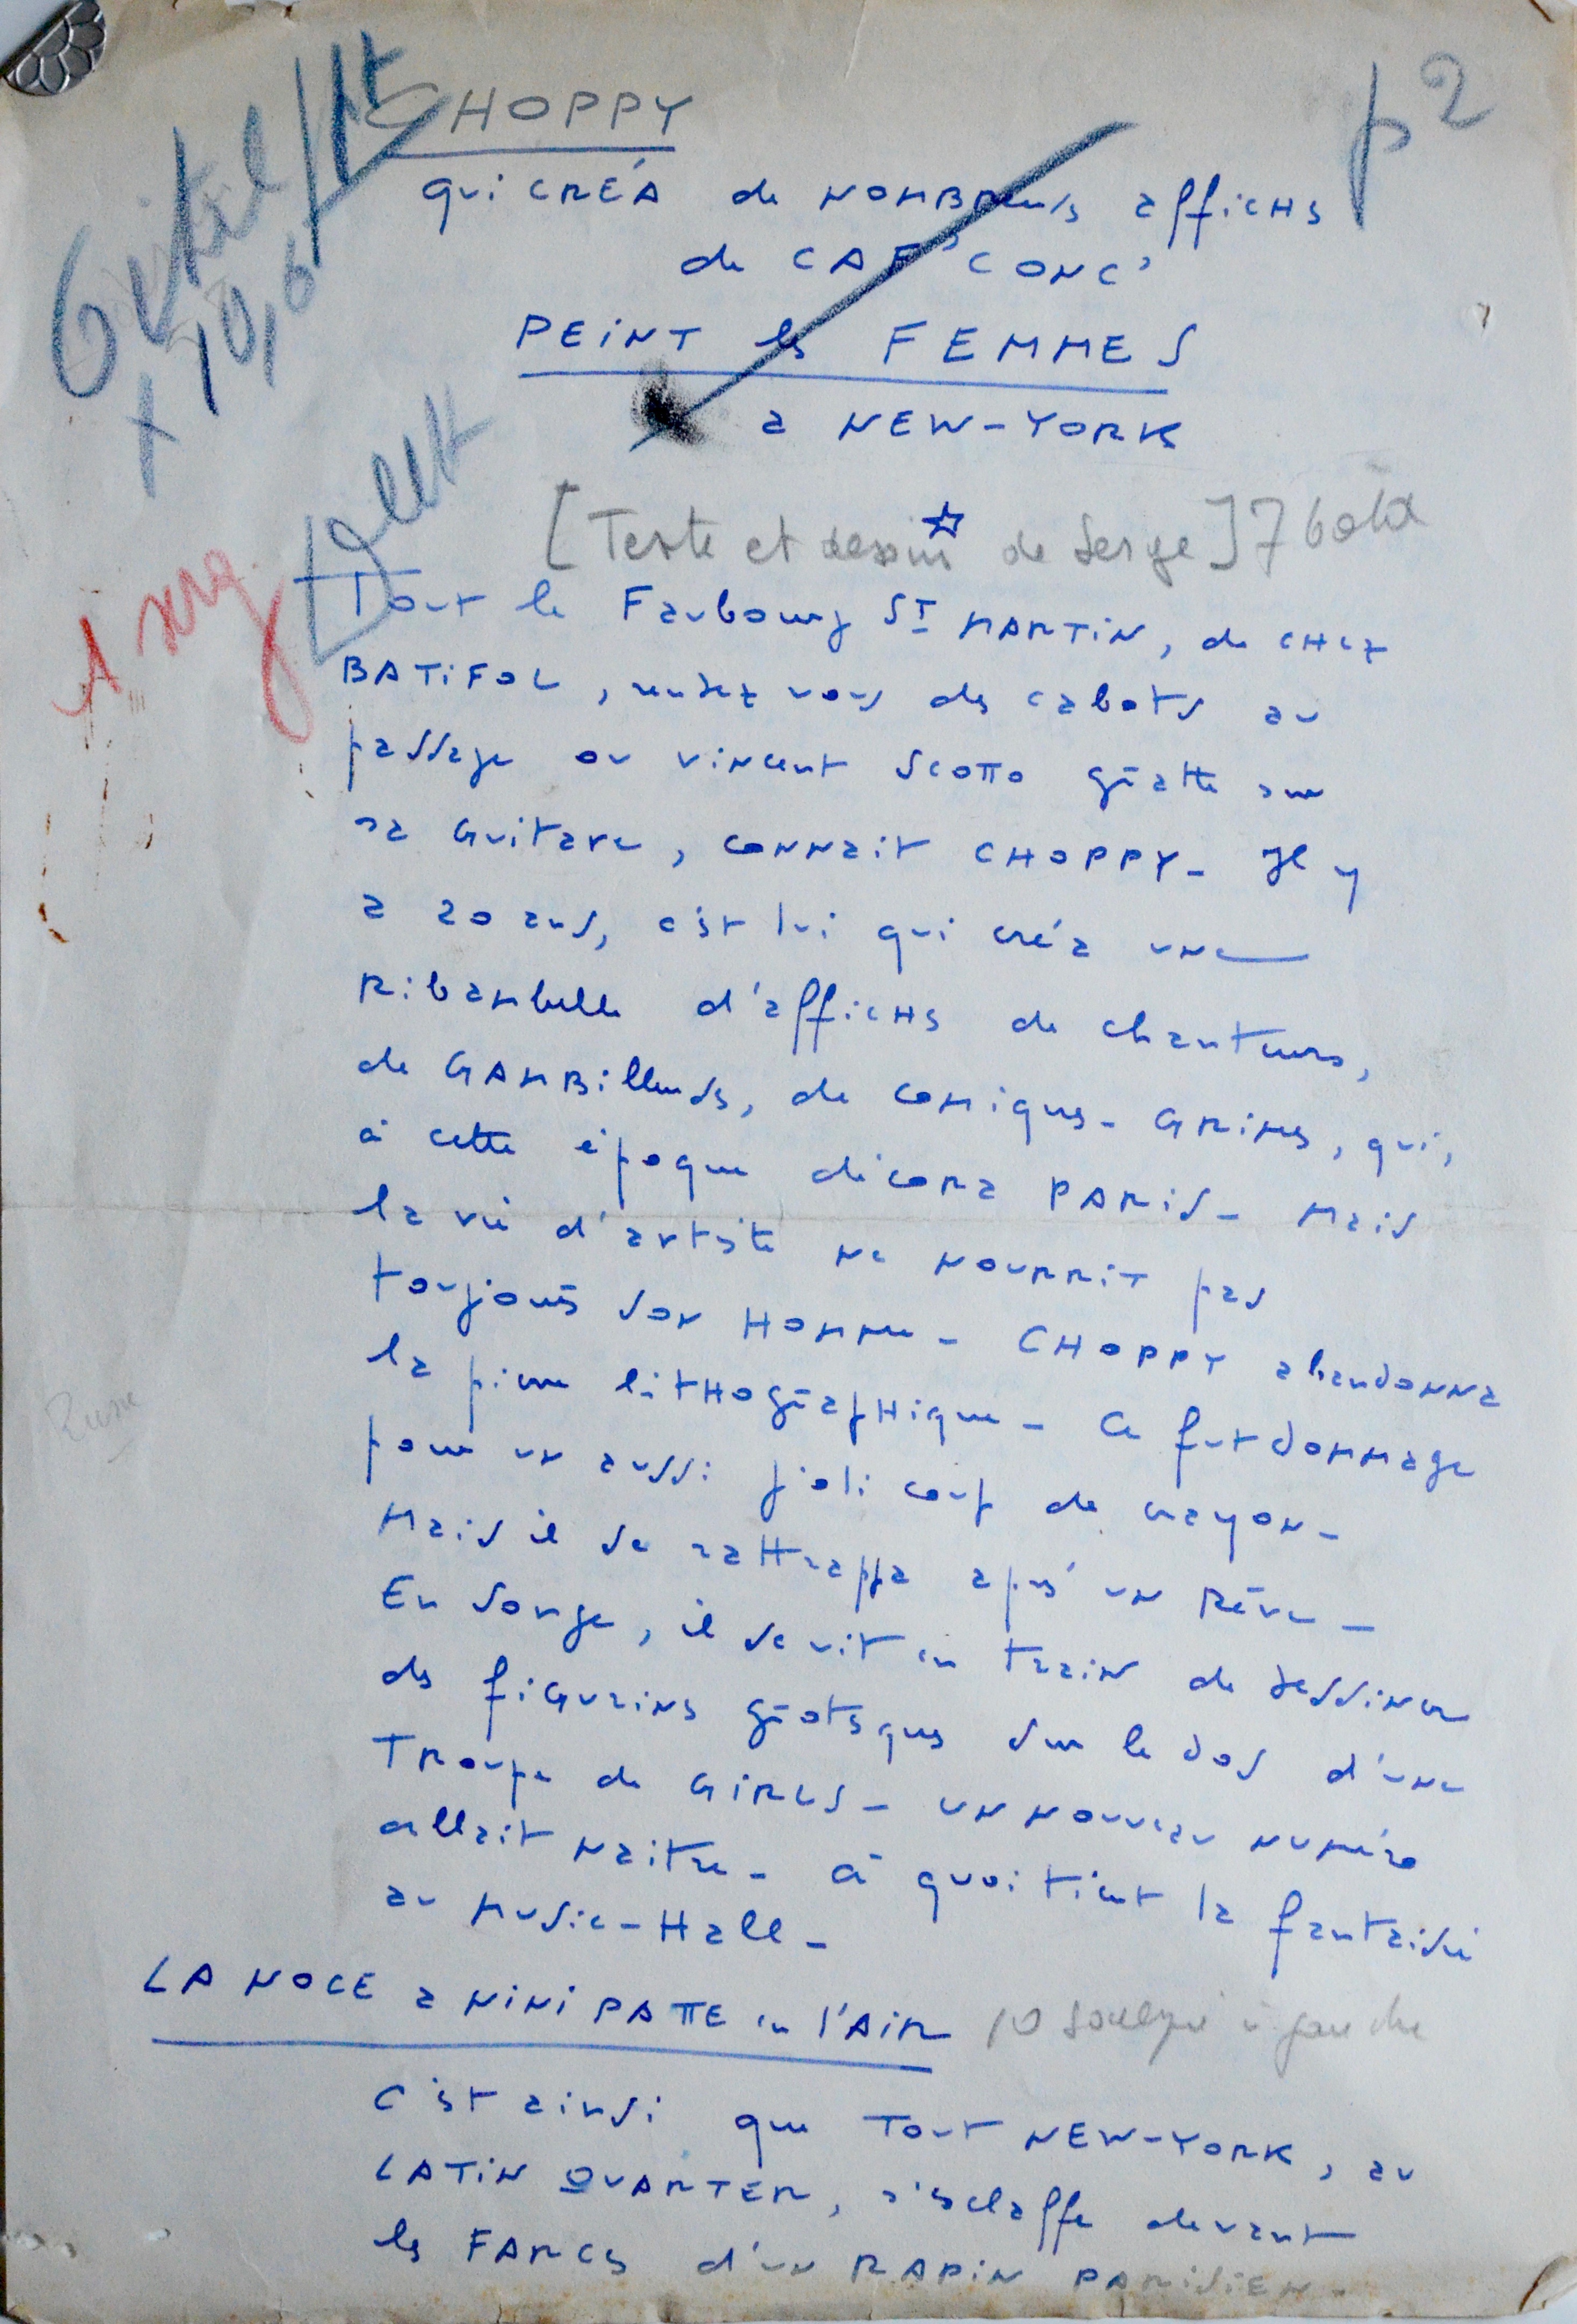 CHOPPY
p 2
qui CRÉA de NOMBREUX affiches
de CAF' CONC'
PEINT les FEMMES
a NEW-YORK
[Texte et dessin de Serge] 7
Tout le Faubourg ST MARTIN, de CHEZ
BATIFOL, rendez vous des cabots au
passage ou Vincent Scotto gratte sur
sa Guitare, connait CHOPPY_ Il y
a 20 ans, c'est lui qui créa une
Ribambelle d'affiches de chanteurs,
de GAMBilleuses, de comiques-GRIMES, qui,
à cette époque décora PARIS_ Mais
la vie d'artiste ne nourrit pas
toujours son Homme_ CHOPPY abandonna
la pierre lithographique_ Ce fut dommage
pour un aussi joli coup de crayon_
Mais il se rattrappa après un Rêve_
En songe, il se vit en train de dessiner
des figurins grotesques sur le dos d'une
Troupe de GIRLS_ un nouveau numéro
allait naitre_ à quoi tient la fantaisie
au Music-Hall_
LA NOCE a NINI PATTE en l'AIR
à gauche
C'est ainsi que Tout NEW-YORK, au
LATIN QUARTER, s'esclaffe devant
les FARCES d'un RAPIN PARISIEN_